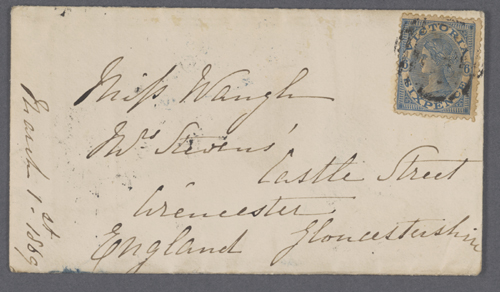 VICTORIA
SIXPENCE
Miss Waugh
Mrs Stevens'
Castle Street
Cirencester
England Gloucestershire
March 1st